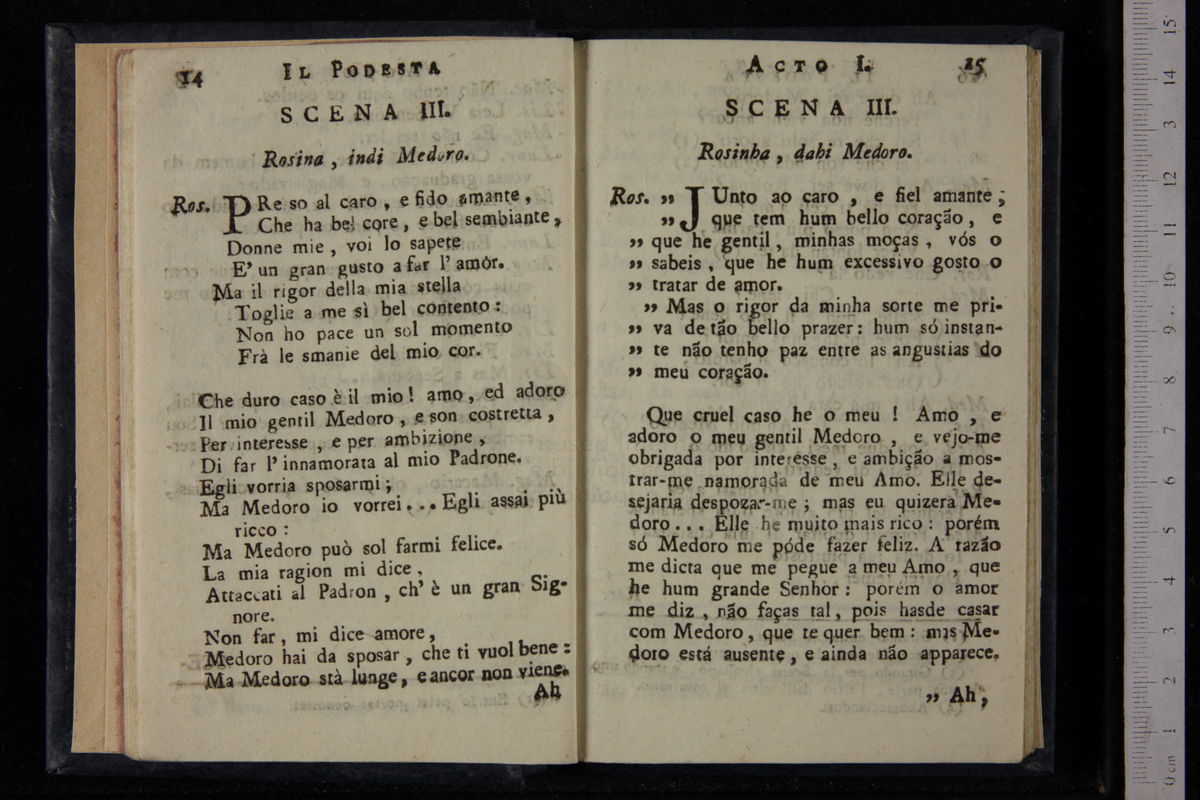 14 IL PODESTA
SCENA III.
Rosina, indi Medoro.
Ros. PRe so al caro, e fido amante,
Che ha bel core, e bel sembiante,
Donne mie, voi lo sapete
E' un gran gusto a far l' amòr.
Ma il rigor della mia stella
Toglie a me sì bel contento:
Non ho pace un sol momento
Frà le smanie del mio cor.
Che duro caso è il mio! amo, ed adoro
Il mio gentil Medoro, e son costretta,
Per interesse, e per ambizione,
Di far l' innamorata al mio Padrone.
Egli vorria sposarmi;
Ma Medoro io vorrei... Egli assai più
ricco:
Ma Medoro può sol farmi felice.
La mia ragion mi dice,
Attaccati al Padron, ch' è un gran Sig-
nore.
Non far, mi dice amore,
Medoro hai da sposar, che ti vuol bene:
Ma Medoro stà lunge, e ancor non viene.
Ah
ACTO I. 15
SCENA III.
Rosinha, dahi Medoro.
Ros. ,, JUnto ao caro, e fiel amante;
,, que tem hum bello coração, e
,, que he gentil, minhas moças, vós o
,, sabeis, que he hum excessivo gosto o
,, tratar de amor.
,, Mas o rigor da minha sorte me pri-
,, va de tão bello prazer: hum só instan-
,, te não tenho paz entre as angustias do
,, meu coração.
Que cruel caso he o meu! Amo, e
adoro o meu gentil Medoro, e vejo-me
obrigada por interesse, e ambição a mos-
trar-me namorada de meu Amo. Elle de-
sejaria despozar-me; mas eu quizera Me-
doro... Elle he muito mais rico: porém
só Medoro me póde fazer feliz. A razão
me dicta que me pegue a meu Amo, que
he hum grande Senhor: porém o amor
me diz, não faças tal, pois hasde casar
com Medoro, que te quer bem: mas Me-
doro está ausente, e ainda não apparece.
,, Ah,
0 cm 1 2 3 4 5 6 7 8 9 10 11 12 13 14 15